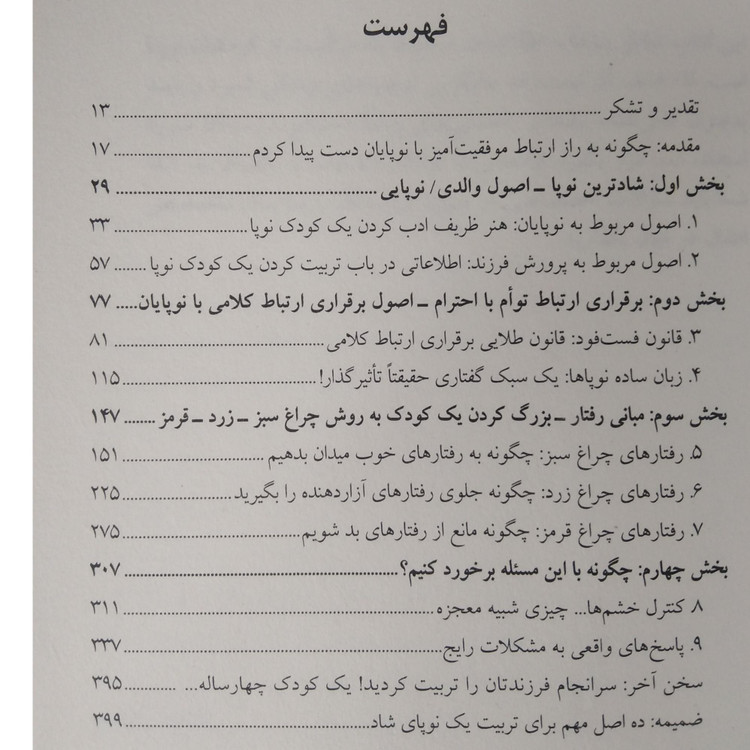 فهرست
تقدیر و تشکر ........ ۱۳
مقدمه: چگونه به راز ارتباط موفقیت‌آمیز با نوپایان دست پیدا کردم ........ ۱۷
بخش اول: شادترین نوپا ـ اصول والدی/ نوپایی ........ ۲۹
۱. اصول مربوط به نوپایان: هنر ظریف ادب کردن یک کودک نوپا ........ ۳۳
۲. اصول مربوط به پرورش فرزند: اطلاعاتی در باب تربیت کردن یک کودک نوپا ........ ۵۷
بخش دوم: برقراری ارتباط توأم با احترام ـ اصول برقراری ارتباط کلامی با نوپایان ..... ۷۷
۳. قانون فست‌فود: قانون طلایی برقراری ارتباط کلامی ........ ۸۱
۴. زبان ساده نوپاها: یک سبک گفتاری حقیقتاً تأثیرگذار! ........ ۱۱۵
بخش سوم: مبانی رفتار ـ بزرگ کردن یک کودک به روش چراغ سبز ـ زرد ـ قرمز ........ ۱۴۷
۵. رفتارهای چراغ سبز: چگونه به رفتارهای خوب میدان بدهیم ........ ۱۵۱
۶. رفتارهای چراغ زرد: چگونه جلوی رفتارهای آزاردهنده را بگیرید ........ ۲۲۵
۷. رفتارهای چراغ قرمز: چگونه مانع از رفتارهای بد شویم ........ ۲۷۵
بخش چهارم: چگونه با این مسئله برخورد کنیم؟ ........ ۳۰۷
۸ کنترل خشم‌ها... چیزی شبیه معجزه ........ ۳۱۱
۹. پاسخ‌های واقعی به مشکلات رایج ........ ۳۳۷
سخن آخر: سرانجام فرزندتان را تربیت کردید! یک کودک چهارساله... ........ ۳۹۵
ضمیمه: ده اصل مهم برای تربیت یک نوپای شاد ........ ۳۹۹